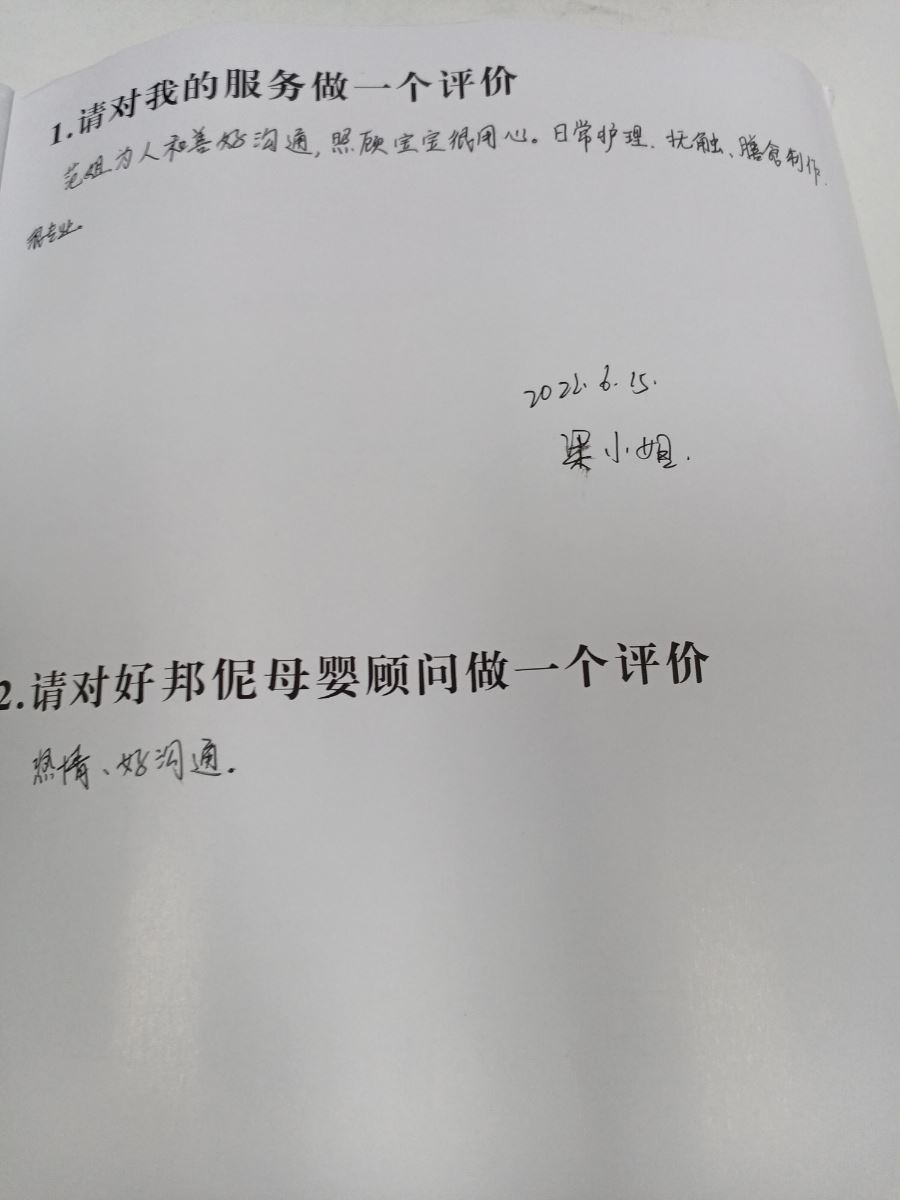 1.请对我的服务做一个评价
范姐为人和善好沟通,照顾宝宝很用心。日常护理、抚触、膳食制作
很专业。
2022.6.15.
梁小姐.
2.请对好邦伲母婴顾问做一个评价
热情、好沟通.